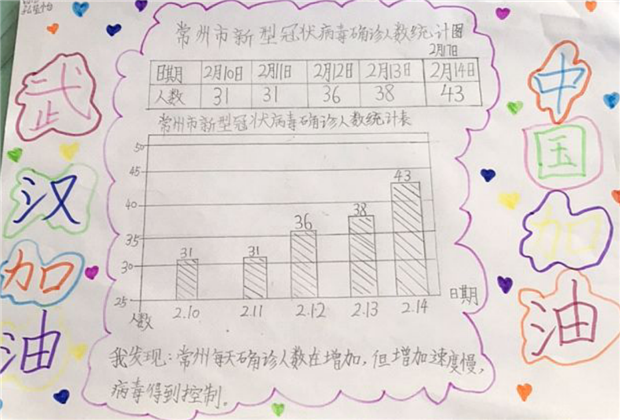 常州市新型冠状病毒确诊人数统计图
2月17日
日期 2月10日 2月11日 2月12日 2月13日 2月14日
人数 31 31 36 38 43
常州市新型冠状病毒确诊人数统计表
50
45
40
35
30
25
31 31 36 38 43
人数 2.10 2.11 2.12 2.13 2.14 日期
我发现：常州每天确诊人数在增加，但增加速度慢，
病毒得到控制。
武
汉
加
油
中
国
加
油